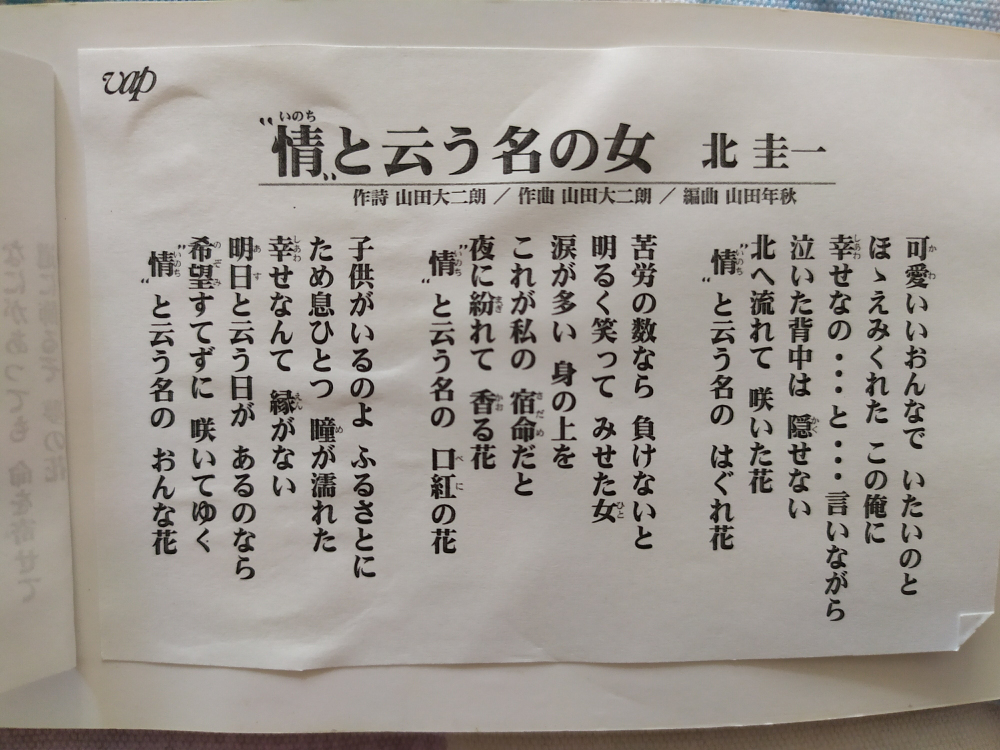 vap
“情”と云う名の女 北 圭一
いのち
作詩 山田大二朗 ／ 作曲 山田大二朗 ／ 編曲 山田年秋
可愛いいおんなで いたいのと
ほゝえみくれた この俺に
幸せなの・・・と・・・言いながら
泣いた背中は 隠せない
北へ流れて 咲いた花
“情”と云う名の はぐれ花
苦労の数なら 負けないと
明るく笑って みせた女
涙が多い 身の上を
これが私の 宿命だと
夜に紛れて 香る花
“情”と云う名の 口紅の花
子供がいるのよ ふるさとに
ため息ひとつ 瞳が濡れた
幸せなんて 縁がない
明日と云う日が あるのなら
希望すてずに 咲いてゆく
“情”と云う名の おんな花